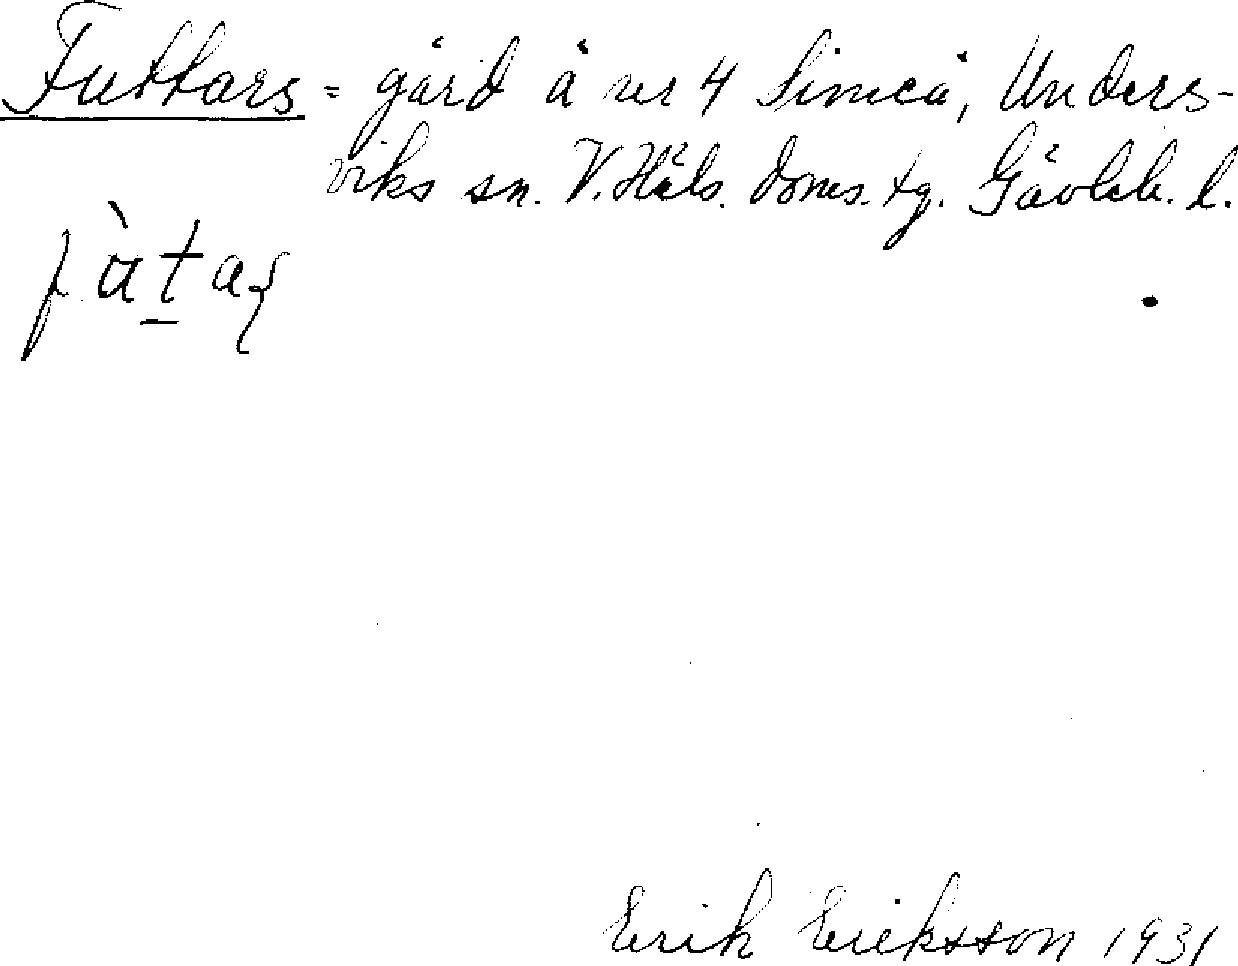 Futtars = gård å nr 4 Simeå, Unders-
viks sn. V. Häls. doms. tg. Gävleb. l.
Erik Eriksson 1931